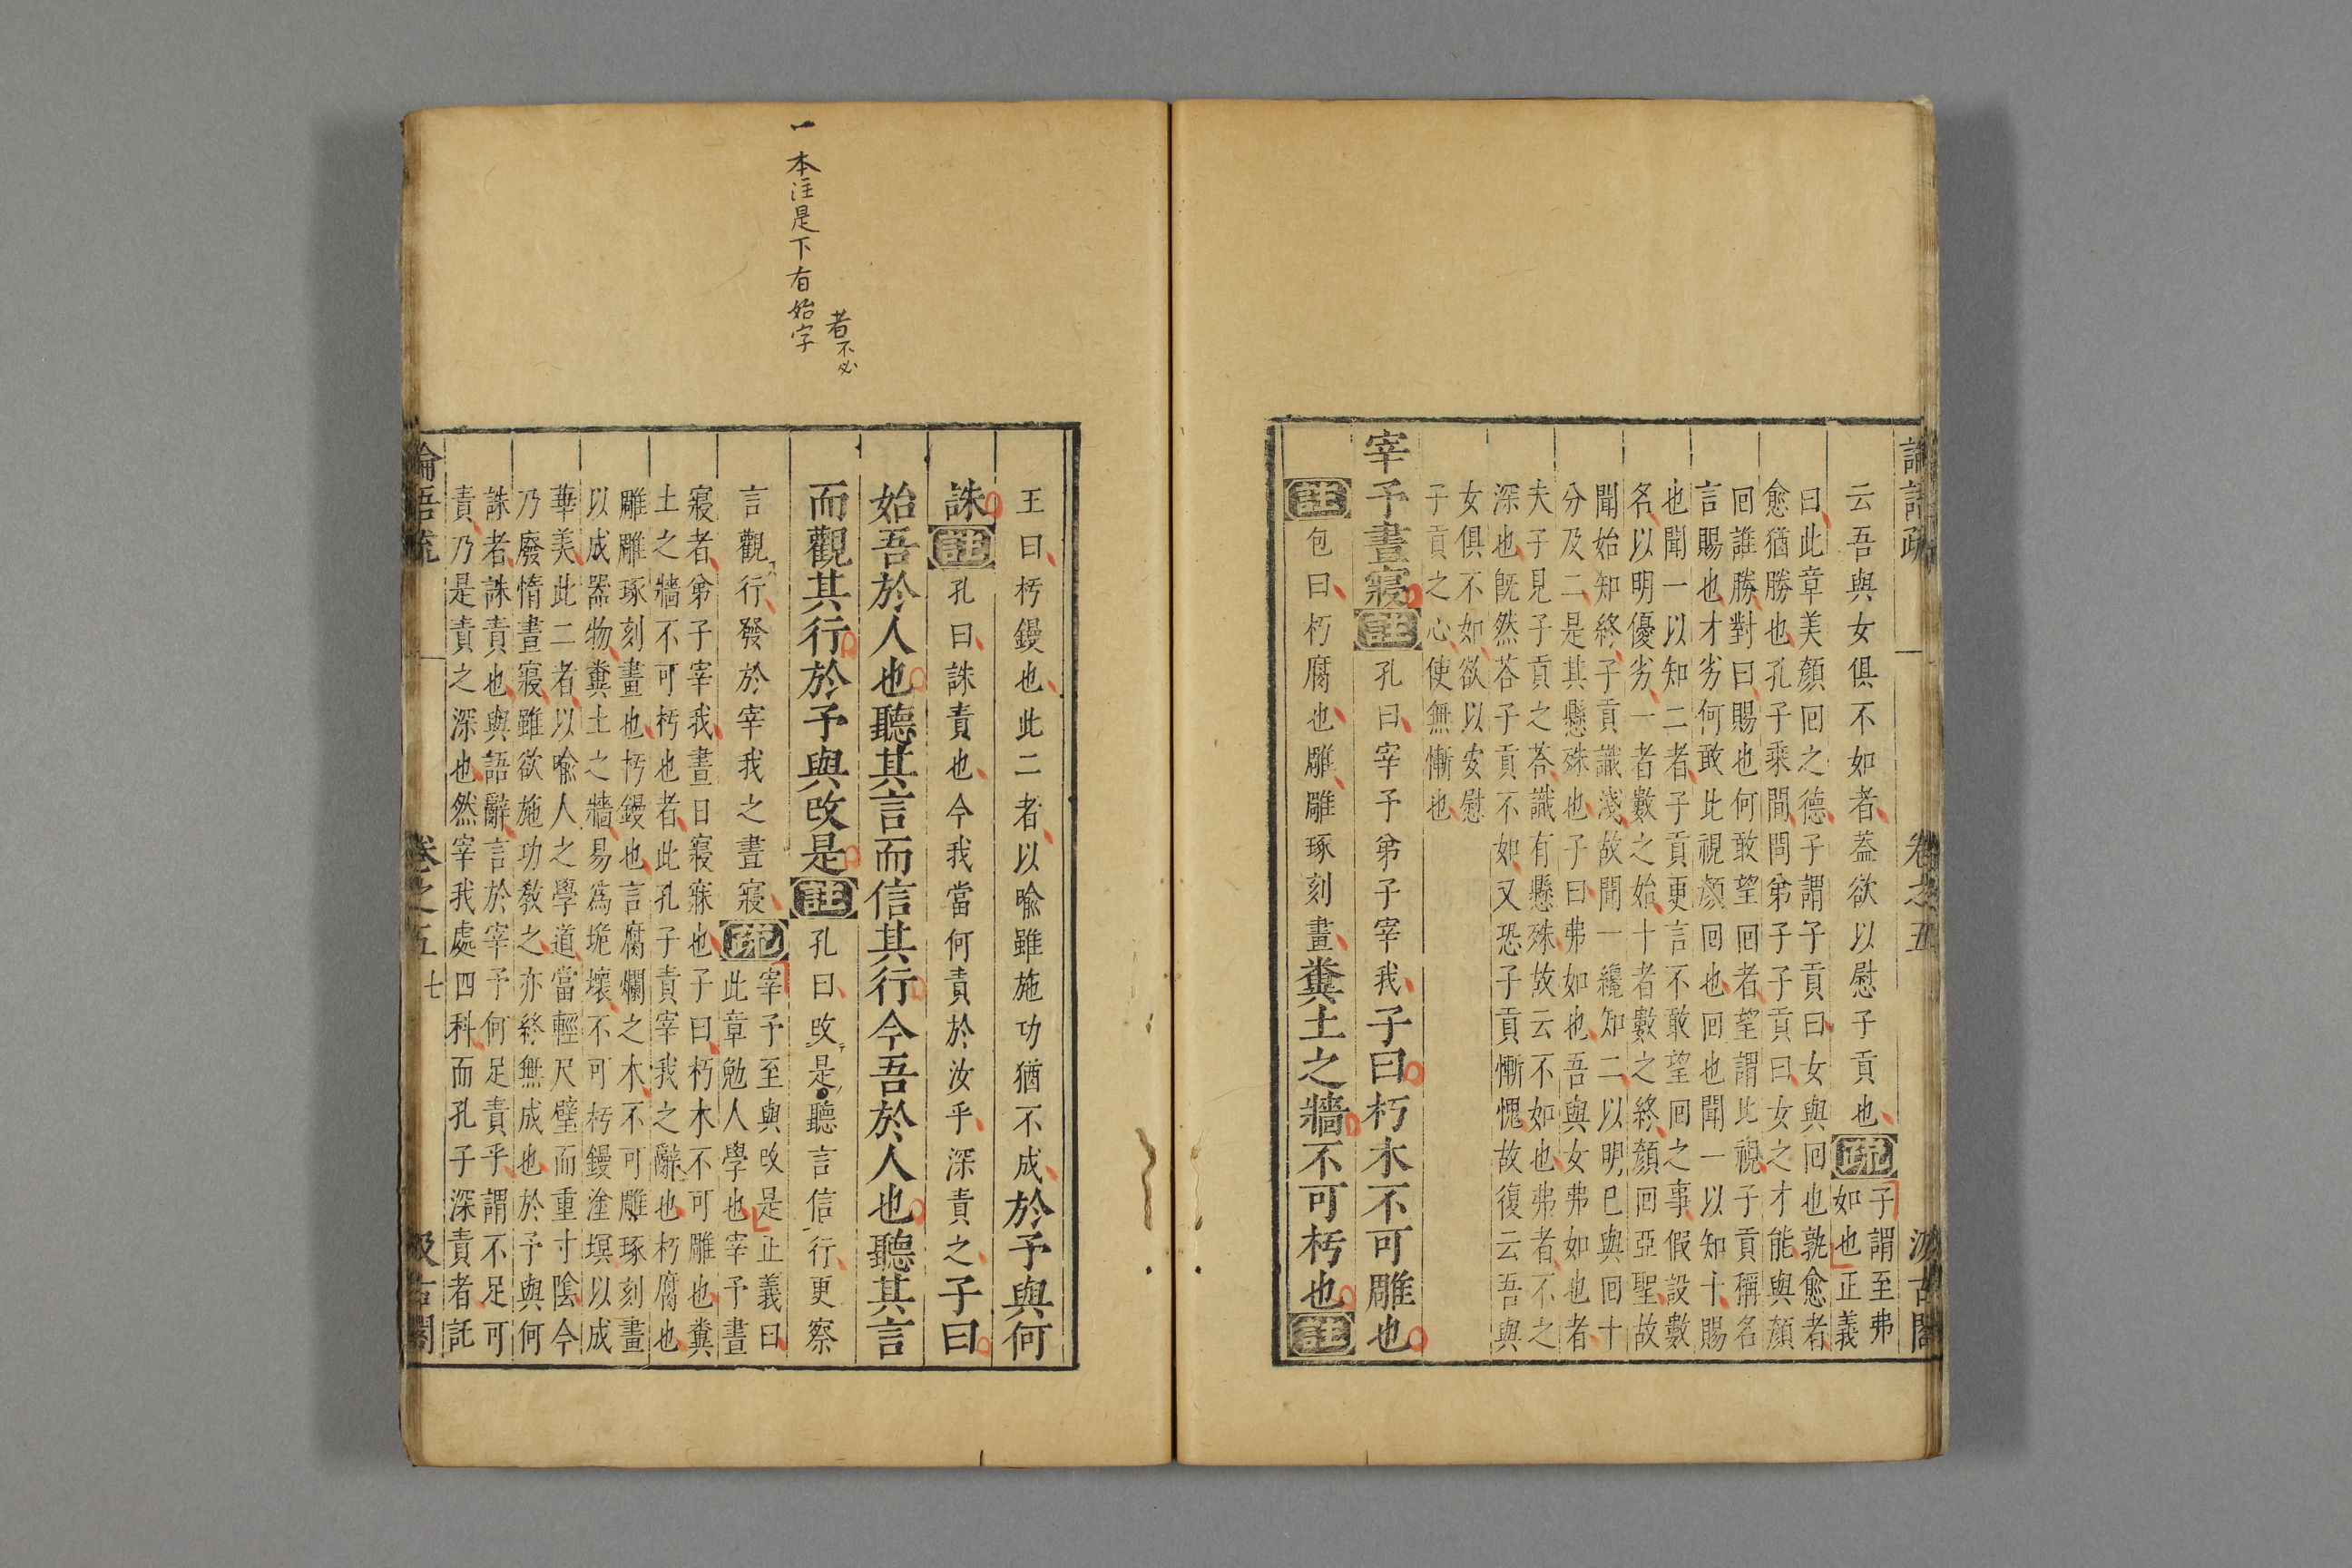 云吾與女俱不如者蓋欲以慰子貢也疏子謂至弗
如也正義
曰此章美顏回之德子謂子貢曰女與回也孰愈者
愈猶勝也孔子乘間問弟子子貢曰女之才能與顏
回誰勝對曰賜也何敢望回者望謂比視子貢稱名
言賜也才劣何敢比視顏回也回也聞一以知十賜
也聞一以知二者子貢更言不敢望回之事假設數
名以明優劣一者數之始十者數之終顏回亞聖故
聞始知終子貢識淺故聞一纔知二以明已與回十
分及二是其懸殊也子曰弗如也吾與女弗如也者
夫子見子貢之荅識有懸殊故云不如也弗者不之
深也旣然荅子貢不如又恐子貢慚愧故復云吾與
女俱不如欲以安慰
子貢之心使無慚也
宰予晝寢註孔曰宰予弟子宰我子曰朽木不可雕也
註包曰朽腐也雕雕琢刻畫糞土之牆不可杇也註
王曰杇鏝也此二者以喻雖施功猶不成於予與何
誅註孔曰誅責也今我當何責於汝乎深責之子曰
始吾於人也聽其言而信其行今吾於人也聽其言
而觀其行於予與改是註孔曰改是聽言信行更察
言觀行發於宰我之晝寢疏宰予至與改是正義曰
此章勉人學也宰予晝
寢者弟子宰我晝日寢寐也子曰朽木不可雕也糞
土之牆不可杇也者此孔子責宰我之辭也朽腐也
雕雕琢刻畫也杇鏝也言腐爛之木不可雕琢刻畫
以成器物糞土之牆易爲垝壞不可杇鏝塗塓以成
華美此二者以喻人之學道當輕尺璧而重寸陰今
乃廢惰晝寢雖欲施功敎之亦終無成也於予與何
誅者誅責也與語辭言於宰予何足責乎謂不足可
責乃是責之深也然宰我處四科而孔子深責者託
論語疏 卷之五 七 汲古閣
者不必
一本注是下有始字